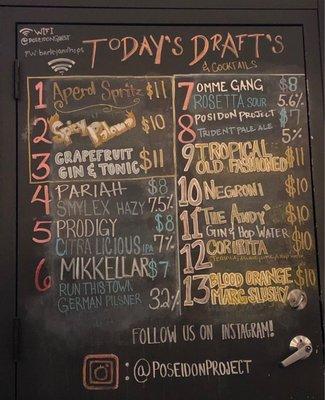 WIFI
@POSEIDONGUEST
PW: barleyandhops
TODAY'S DRAFT'S
& COCKTAILS
1 Aperol Spritz $11
2 Spicy Paloma $10
3 GRAPEFRUIT GIN & TONIC $11
4 PARIAH $8
SMYLEX HAZY 7.5%
5 PRODIGY $8
CITRALICIOUS IPA 7%
6 MIKKELLAR $7
RUN THIS TOWN
GERMAN PILSNER 3.2%
7 OMME GANG $8
ROSETTA SOUR 5.6%
8 POSIDON PROJECT $7
TRIDENT PALE ALE 5%
9 TROPICAL
OLD FASHIONED $11
10 NEGRONI $10
11 THE "ANDY" $10
GIN & HOP WATER
12 CORITITA $10
13 BLOOD ORANGE $10
MARG SLUSHY
FOLLOW US ON INSTAGRAM!
: @POSEIDONPROJECT